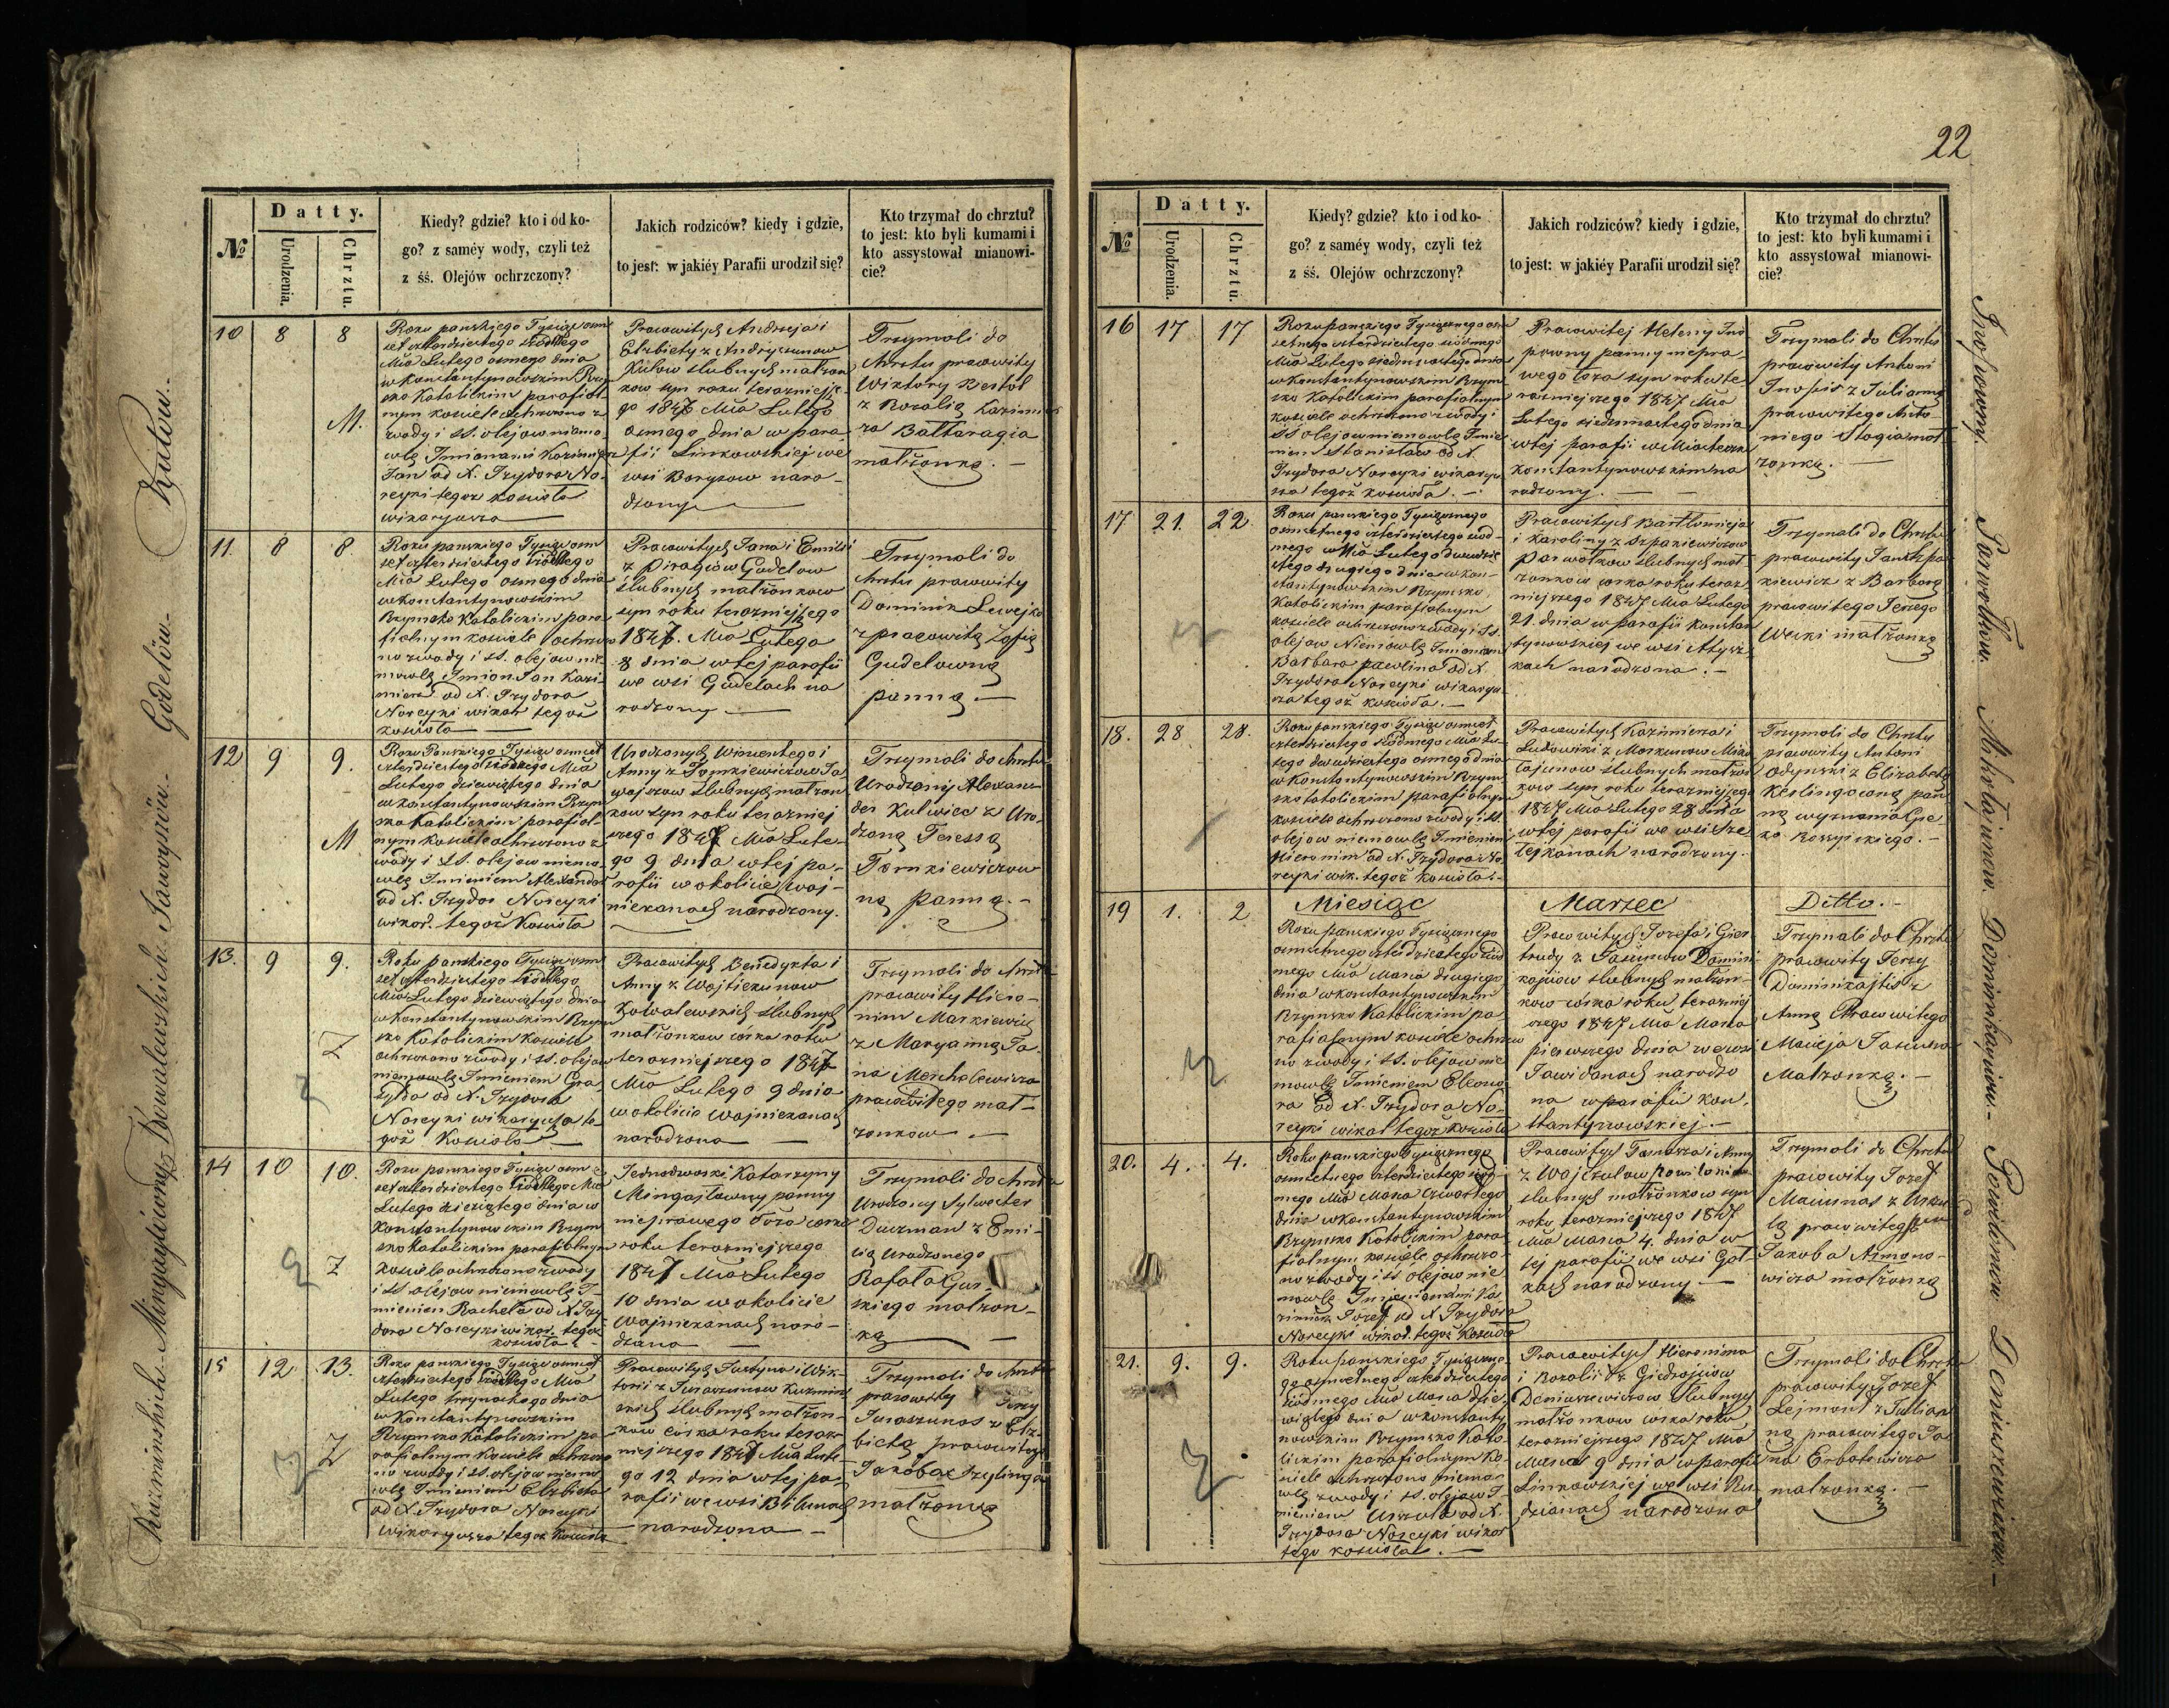 22
Datty.
№
Urodzenia.
Chrztu.
Kiedy? gdzie? kto i od ko-
go? z saméy wody, czyli też
z śś. Olejów ochrzczony?
Jakich rodziców? kiedy i gdzie,
to jest: w jakiéy Parafii urodził się?
Kto trzymał do chrztu?
to jest: kto byli kumami i
kto assystował mianowi-
cie?
10 8 8
M.
Roku pańskiego Tysiąc osm
set czterdziestego siódmego
Mca Lutego osmego dnia
w Konstantynowskim Rzym
sko Katolickim parafial-
nym kosciele ochrzczono z
wody i ss. olejow niemo-
wlę Imionami Kazimierz
Jan od X. Izydora No-
reyki tegoz kosciola
wikaryusza
Pracowitych Andrzeja i
Elzbiety z Andryszunow
Kutow slubnych malzon
kow syn roku terazniejsze
go 1847 Mca Lutego
osmego dnia w para
fii Linkowskiej we
wsi Borysow naro-
dzony
Trzymali do
chrztu pracowity
Wiktory
z Rozalią Kazimie
rza Baltaragia
malżonką. —
11. 8 8.
Roku pańskiego Tysiąc osm
set czterdziestego siódmego
Mca Lutego osmego dnia
w Konstantynowskim
Rzymsko Katolickim para
fialnym kosciele ochrzczo
no z wody i ss. olejow nie
mowlę Imion Jan Kazi
mierz od X. Izydora
Noreyki wikar. tegoż
kosciola
Pracowitych Jana i Emilii
z Piragiow Gudelow
ślubnych malżonkow
syn roku terazniejszego
1847. Mca Lutego
8 dnia w tej parafii
we wsi Gudelach na
rodzony
Trzymali do
chrztu pracowity
Dominik Lewejko
z pracowitą Zofią
Gudelowną
panną. —
12 9 9.
M
Roku Pańskiego Tysiąc osmset
czterdziestego siódmego Mca
Lutego dziewiątego dnia
w Konstantynowskim Rzym
sko Katolickim parafial-
nym kosciele ochrzczono z
wody i ss. olejow niemo
wlę Imieniem Alexander
od X. Izydor Noreyki
wikar. tegoż Kosciola
Urodzonych Wincentego i
Anny z Tomkiewiczow Ja
woyszow slubnych malzon
kow syn roku terazniej
szego 1847 Mca Lute-
go 9 dnia w tej pa-
rafii w okolicie Woj-
niekanach narodzony.
Trzymali do chrztu
Urodzony Alexan-
der Kulwiec z Uro-
dzoną Teressą
Tomkiewiczow
ną panną. —
13. 9 9.
Z
Roku pańskiego Tysiąc osm
set czterdziestego siódmego
Mca Lutego dziewiątego dnia
w Konstantynowskim Rzym
sko Katolickim Kosciele
ochrzczono z wody i ss. olejow
niemowlę Imieniem Gra
żylda od X. Izydora
Noreyki wikaryusza te
goż Kosciola —
Pracowitych Benedykta i
Anny z Wojtiekunow
Kowalewskich slubnych
malżonkow córka roku
terazniejszego 1847
Mca Lutego 9 dnia
w okolicie Wojniekanach
narodzona —
Trzymali do chrztu
pracowity Hiero-
nim Markiewicz
z Maryanną Ja-
na Mechalewicza
pracowitego mał-
żonkow —
14 10 10.
Z
Roku pańskiego Tysiąc osm
set czterdziestego siódmego Mca
Lutego dziesiątego dnia w
Konstantynowskim Rzym
sko katolickim parafialnym
kosciele ochrzczono z wody
i ss olejow niemowlę I-
mieniem Rachela od X. Izy
dora Noreyki wikar. tegoz
kosciola —
Jednodworski Katarzyny
Mingajlowny panny
nieprawego łoża corka
roku terazniejszego
1847 Mca Lutego
10 dnia w okolicie
Wojniekanach naro-
dzona —
Trzymali do chrztu
Urodzony Sylwester
Duczman z Emi-
lią Urodzonego
Rafała
skiego malżon-
ką —
15 12 13.
Z
Roku pańskiego Tysiąc osmset
czterdziestego siódmego Mca
Lutego trzynastego dnia
w Konstantynowskim
Rzymsko Katolickim pa
rafialnym Kosciele ochrzczo
no z wody i ss. olejow niemo
wlę Imieniem Elzbieta
od X. Izydora Noreyki
wikaryusza tegoz Kosciola
Pracowitych Justyna i Wik-
toryi z Juraszunow Kuzmins
kich slubnych malżon-
kow córka roku teraz-
niejszego 1847 Mca Lute-
go 12 dnia w tej pa-
rafii we wsi Bitunach
— narodzona —
Trzymali do chrztu
pracowity Jerzy
Juraszunas z Elz-
bietą pracowitego
Jakóba Szylinga
malżonką
Kuźmińskich — Mingayłówny. Kowalewskich Jawoyszów. — Gudelów. — Kutow. —
Datty.
№
Urodzenia.
Chrztu.
Kiedy? gdzie? kto i od ko-
go? z saméy wody, czyli też
z śś. Olejów ochrzczony?
Jakich rodziców? kiedy i gdzie,
to jest: w jakiéy Parafii urodził się?
Kto trzymał do chrztu?
to jest: kto byli kumami i
kto assystował mianowi-
cie?
16 17 17
Roku pańskiego Tysiącznego osm
setnego czterdziestego siódmego
Mca Lutego siedmnastego dnia
w Konstantynowskim Rzym
sko Katolickim parafialnym
kosciele ochrzczono z wody i
SS olejow niemowlę Imie
niem Stanisław od X.
Izydora Noreyki wikaryu
sza tegoż kosciola. —
Pracowitej Heleny Ino
powny panny niepra
wego łoża syn roku te
razniejszego 1847 Mca
Lutego siedmnastego dnia
w tej parafii w Miasteczku
Konstantynowskim na
rodzony. — —
Trzymali do Chrztu
pracowity Antoni
z Julianną
pracowitego Anto-
niego mał
żonką. —
17 21. 22
Roku pańskiego Tysiącznego
osmsetnego czterdziestego siód-
mego Mca Lutego dwudzie
stego drugiego dnia w Kon-
stantynowskim Rzymsko
Katolickim parafialnym
kosciele ochrzczono z wody i ss.
olejow Niemowlę Imionami
Barbara Pawlina od X.
Izydora Noreyki wikaryu
sza tegoż kosciola. —
Pracowitych Bartlomieja
i Karoliny z Szpakiewiczow
Parwotkow slubnych mał-
żonkow corka roku teraz
niejszego 1847 Mca Lutego
21. dnia w parafii Konstan
tynowskiej we wsi
kach narodzona. —
Trzymali do Chrztu
pracowity Jan Szpa
kiewicz z Barborą
pracowitego Jerzego
malżonką
18. 28 28.
Roku pańskiego Tysiąc osmset
czterdziestego siódmego Mca Lu-
tego dwudziestego osmego dnia
w Konstantynowskim Rzym
sko katolickim parafialnym
kosciele ochrzczono z wody i ss.
olejow niemowlę Imieniem
Hieronim od X. Izydora No
reyki wik. tegoż kosciola. —
Pracowitych Kazimierza i
Ludowiki z Morkunow Miko
łajunow slubnych malżon
kow syn roku terazniejszego
1847 Mca Lutego 28 dnia
w tej parafii we wsi Sze
lejkanach narodzony.
Trzymali do Chrztu
pracowity Antoni
Odynski z Elizabetą
Keslingowną pan
ną wyznania Gre-
ko Rossyiskiego. —
Miesiąc Marzec Ditto. —
19 1. 2
Roku pańskiego Tysiącznego
osmsetnego czterdziestego siód
mego Mca Marca drugiego
dnia w Konstantynowskim
Rzymsko Katolickim pa
rafialnym kosciele ochrzczo
no z wody i ss. olejow nie
mowlę Imieniem Eleono
ra od X. Izydora No-
reyki wikar tegoż kosciola
Pracowitych Jozefa i Gier
trudy z Jasiunow Domini
kajciow slubnych malżon-
kow corka roku terazniej
szego 1847 Mca Marca
pierwszego dnia we wsi
Jawidanach narodzo
na w parafii Kon.
stantynowskiej. —
Trzymali do Chrztu
pracowity Jerzy
Dominikajtis z
Anną Pracowitego
Macieja Jasiuna
Malżonką. —
20. 4. 4.
Roku pańskiego Tysiącznego
osmsetnego czterdziestego siód
mego Mca Marca Czwartego
dnia w Konstantynowskim
Rzymsko Katolickim para
fialnym kosciele ochrzczo-
no z wody i ss. olejow nie
mowlę Imionami Ka
zimierz Józef od X Izydora
Noreyki wikar. tegoż Kosciola
Pracowitych Tomasza i Anny
z Wojczulow Powilonow
slubnych malżonkow syn
roku terazniejszego 1847
Mca Marca 4. dnia w
tej parafii we wsi Goł-
kach narodzony —
Trzymali do Chrztu
pracowity Jozef
Maciunas z Urszu
lą pracowitego
Jakoba Azmono-
wicza malżonką
21. 9. 9.
Roku pańskiego Tysiączne-
go osmsetnego czterdziestego
siódmego Mca Marca dzie-
wiątego dnia w Konstanty
nowskim Rzymsko Kato
lickim parafialnym Ko-
sciele ochrzczono niemo-
wlę z wody i ss. olejow I-
mieniem Urszula od X.
Izydora Noreyki wikar
tego kosciola. —
Pracowitych Hieronima
i Rozalii z Giedrojciow
Deniuszewiczow slubnych
malżonkow corka roku
terazniejszego 1847 Mca
Marca 9 dnia w parafii
Linkowskiej we wsi Ru
dzianach narodzona
Trzymali do Chrztu
pracowity Jozef
Lejmont z Julian
ną pracowitego Ja
na Erbatowicza
malżonką. —
Inopowny. Parwotków. Mikołajunów. Dominikajciow. — Powilonow. Deniuszewiczow. —